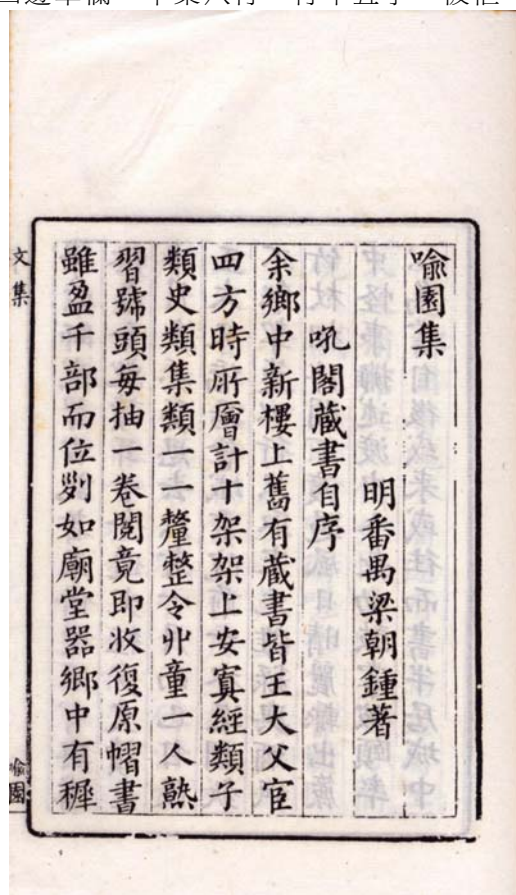 喻園集
明番禺梁朝鍾著
吼閣藏書自序
余鄉中新樓上舊有藏書皆王大父宦
四方時所層計十架架上安寘經類子
類史類集類一一釐整令丱童一人𤍠
習號頭每抽一卷閱竟即收復原㡌書
雖盈千部而位列如廟堂器鄉中有穉
文集
喻園